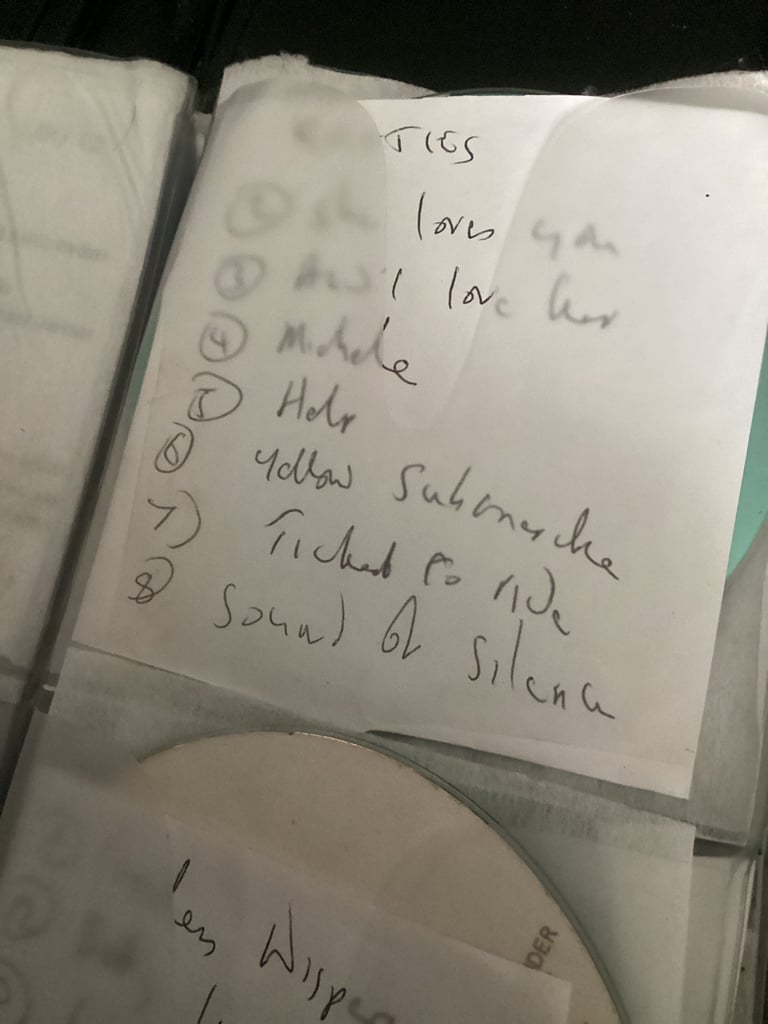 TIES
② She loves you
③ And I love her
④ Michele
⑤ Help
⑥ Yellow Submarine
7) Ticket to ride
8) Sound of Silence
DER
les Wisper